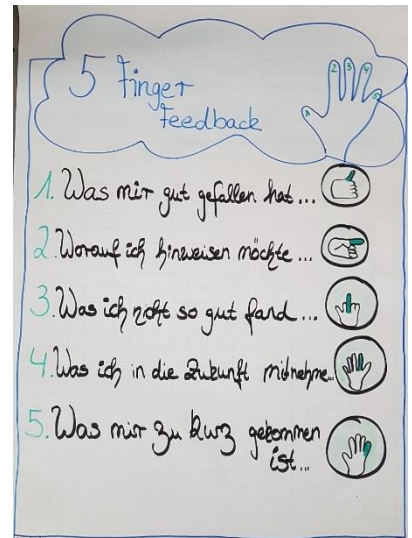 5 Finger
Feedback
1 2 3 4 5
1. Was mir gut gefallen hat...
2. Worauf ich hinweisen möchte...
3. Was ich nicht so gut fand...
4. Was ich in die Zukunft mitnehme...
5. Was mir zu kurz gekommen
ist...